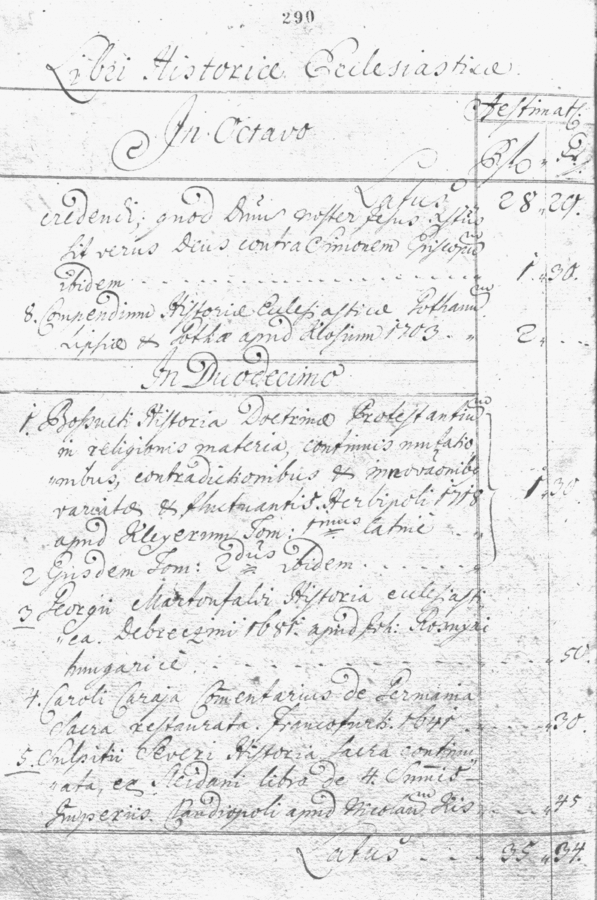 290
Libri Historicæ Ecclesiasticæ
In Octavo
Aestimat
Latus 28 29.
credendi; quod Dnus noster Jesus
sit verus Deus contra Simonem Episcopiu
ibidem 1. 30.
8. Compendium Historiæ Ecclesiasticæ Gothanu
Lipsiæ & Gothæ apud Klosium 1703 2
In Duodecimo
1. Bossueti Historia Doctrinæ Protestantiu
in religionis materia, continuis mutatio
nibus, contradictionibus & innovaonibs
variatæ & fluctuantis. Herbipoli 1718 1 30
apud Kleyerum Tom: 1mus latine
2 Ejusdem Tom: 2dus ibidem
3 Georgii Martonfalvi Historia ecclesiasti
ca. Debreczini 1681. apud Joh: Rosnyai
hungarice 50.
4. Caroli Caraja Comentarius de Germania
Sacra restaurata. Francofurti. 1641 30.
5. Sulpitii Severi Historia sacra continu
ata, ex Sleidani libro de 4. Summis
Imperiis. Claudiopoli apud Nicolaum Kis 45
Latus 35 34.